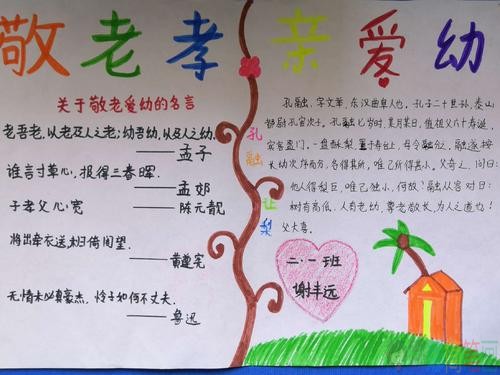 敬老孝亲爱幼
关于敬老爱幼的名言
老吾老,以老及人之老;幼吾幼,以及人之幼.
——孟子
谁言寸草心,报得三春晖.
——孟郊
子孝父心宽
——陈元靓
将出牵衣送,未归倚闾望.
——黄遵宪
无情未必真豪杰,怜子如何不丈夫.
——鲁迅
孔融让梨
孔融,字文举,东汉曲阜人也.孔子二十世孙,泰山
都尉孔宙次子.孔融七岁时,某月某日,值祖父六十寿诞,
宾客盈门.一盘酥梨,置于寿台上,母令融分之.融遂按
长幼次序而分,各得其所,唯己所得甚小.父奇之,问曰:
他人得梨巨,唯己独小,何故?融从容对曰:
树有高低,人有老幼,尊老敬长,为人之道也!
父大喜.
二.一班
谢丰远